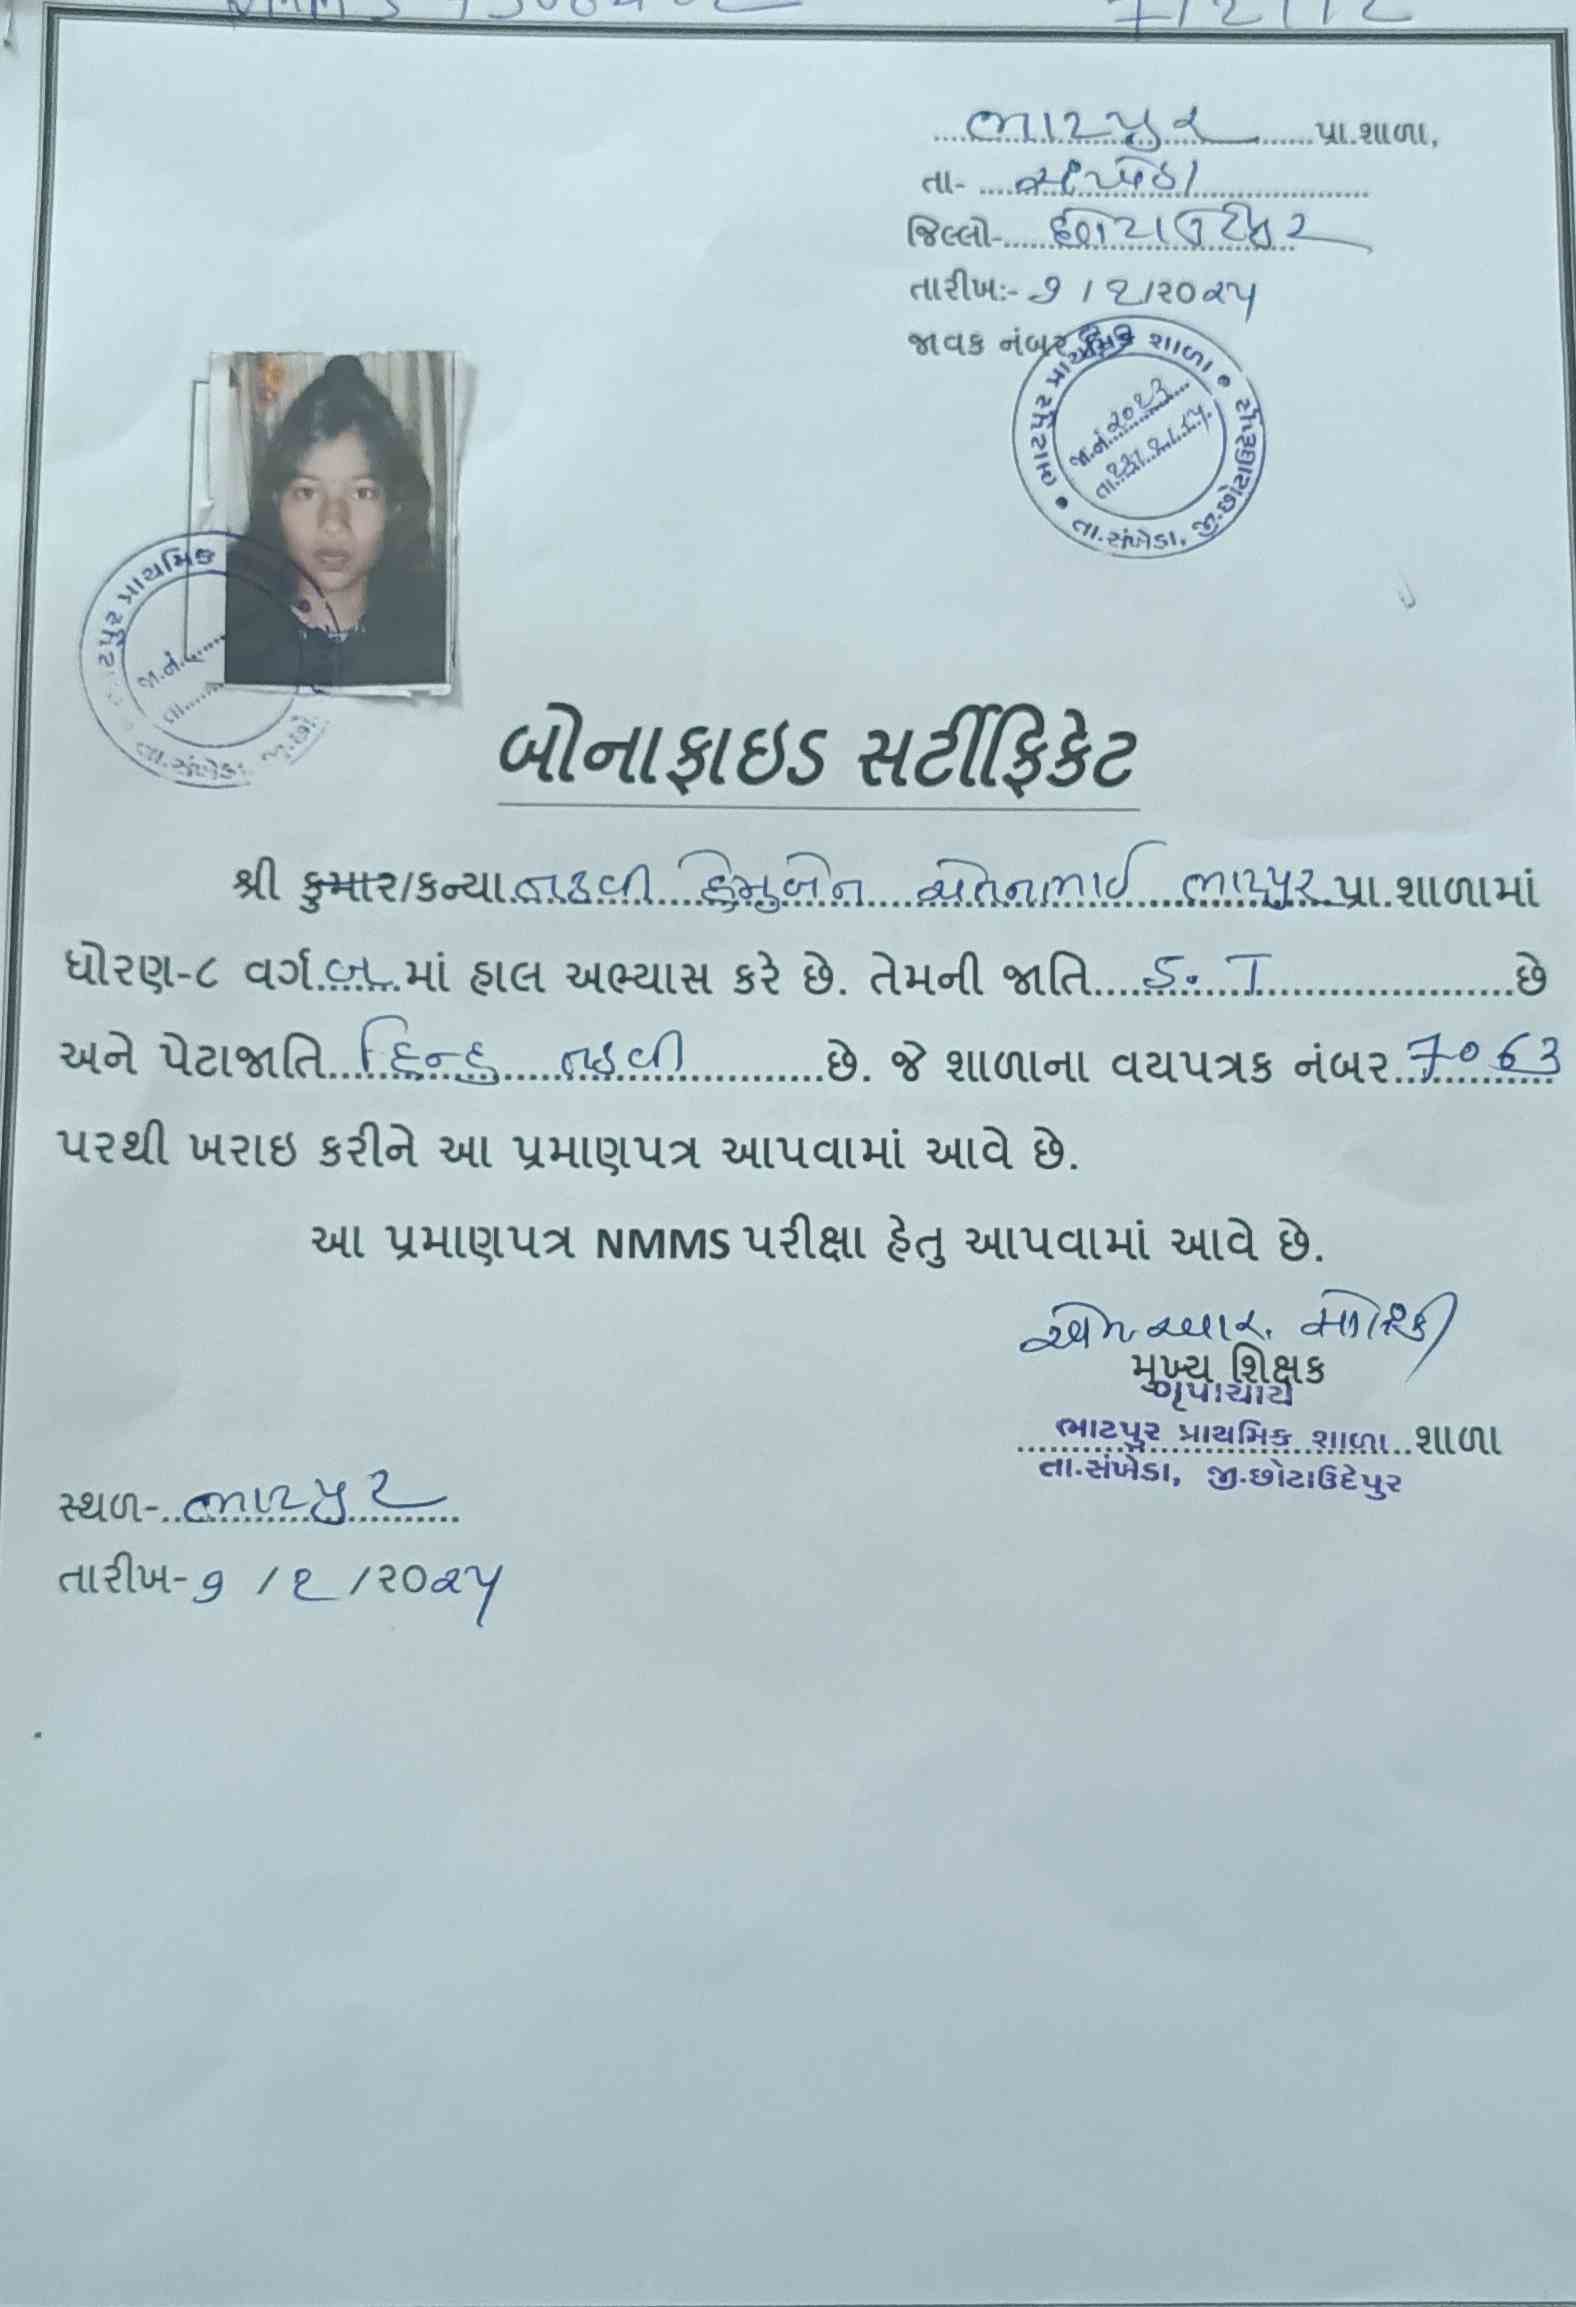 ભાટપુર પ્રા.શાળા,
તા- સંખેડા
જિલ્લો- છોટાઉદેપુર
તારીખ:- ૭ / ૨ /૨૦૨૫
જાવક નંબર
ભાટપુર પ્રાથમિક શાળા
જા.નં. ૨૦૨૩
તા.
તા.સંખેડા, જી.છોટાઉદેપુર
ભાટપુર પ્રાથમિક
જા.નં.
તા.
તા.સંખેડા, જી.છો
બોનાફાઇડ સર્ટીફિકેટ
શ્રી કુમાર/કન્યા તડવી હેમુબેન ચેતનભાઈ ભાટપુર પ્રા.શાળામાં
ધોરણ-૮ વર્ગ બ માં હાલ અભ્યાસ કરે છે. તેમની જાતિ S.T છે
અને પેટાજાતિ હિન્દુ તડવી છે. જે શાળાના વયપત્રક નંબર 7063
પરથી ખરાઇ કરીને આ પ્રમાણપત્ર આપવામાં આવે છે.
આ પ્રમાણપત્ર NMMS પરીક્ષા હેતુ આપવામાં આવે છે.
મુખ્ય શિક્ષક
ગૃપાચાર્ય
ભાટપુર પ્રાથમિક શાળા શાળા
તા.સંખેડા, જી.છોટાઉદેપુર
સ્થળ- ભાટપુર
તારીખ- ૭ / ૨ /૨૦૨૫